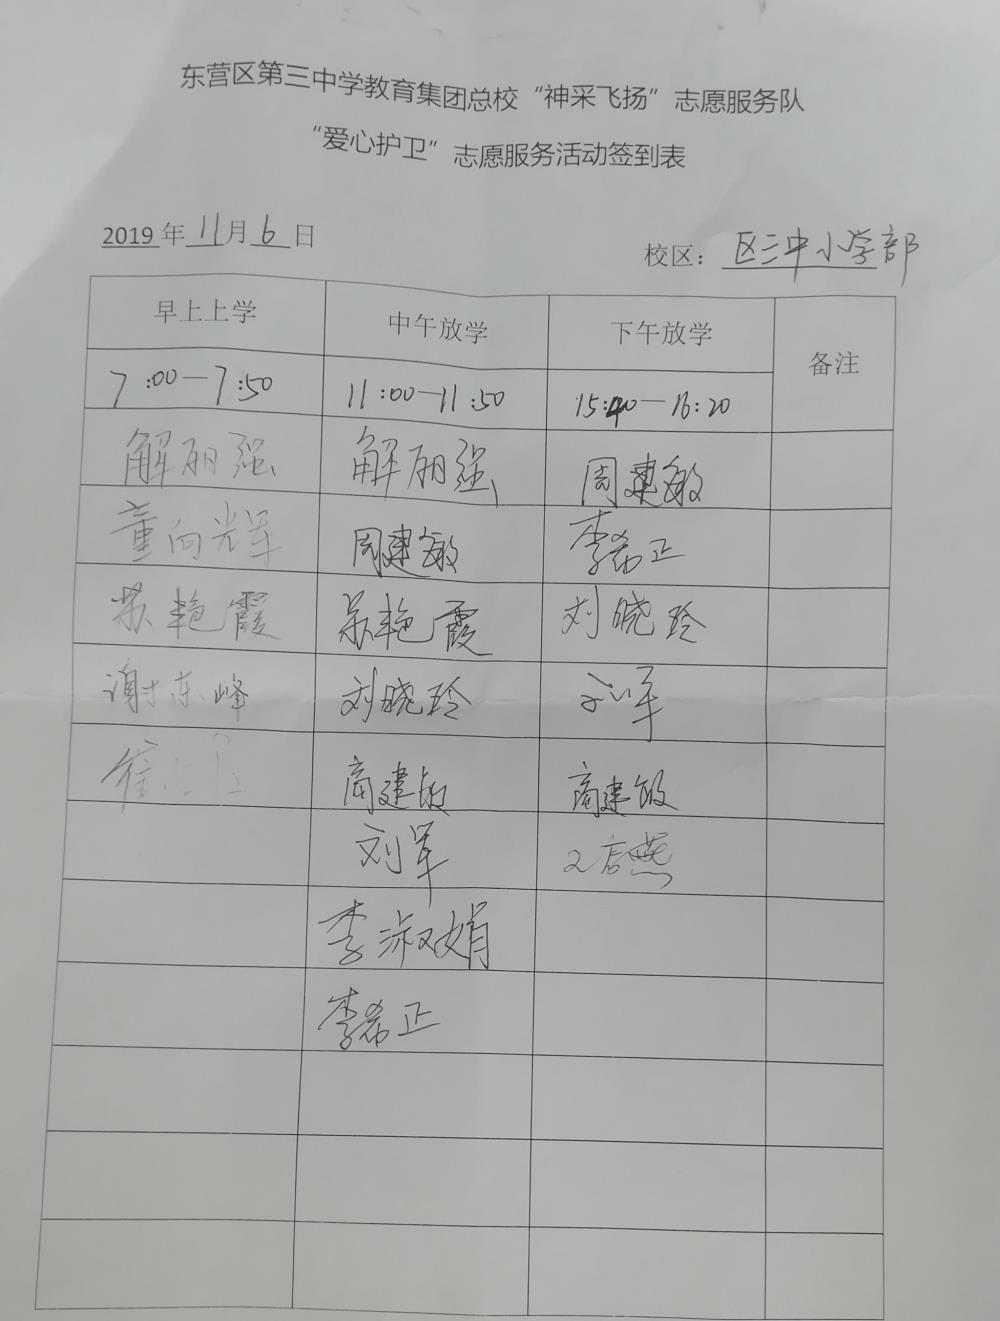 东营区第三中学教育集团总校“神采飞扬”志愿服务队
“爱心护卫”志愿服务活动签到表
2019年11月6日 校区：区三中小学部
早上上学 中午放学 下午放学 备注
7:00—7:50 11:00—11:50 15:40—16:20
解丽强 解丽强 周建敏
董向光军 周建敏 李希正
苏艳霞 苏艳霞 刘晓玲
谢东峰 刘晓玲 刘军
崔 商建敏 商建敏
刘军 燕
李淑娟
李希正